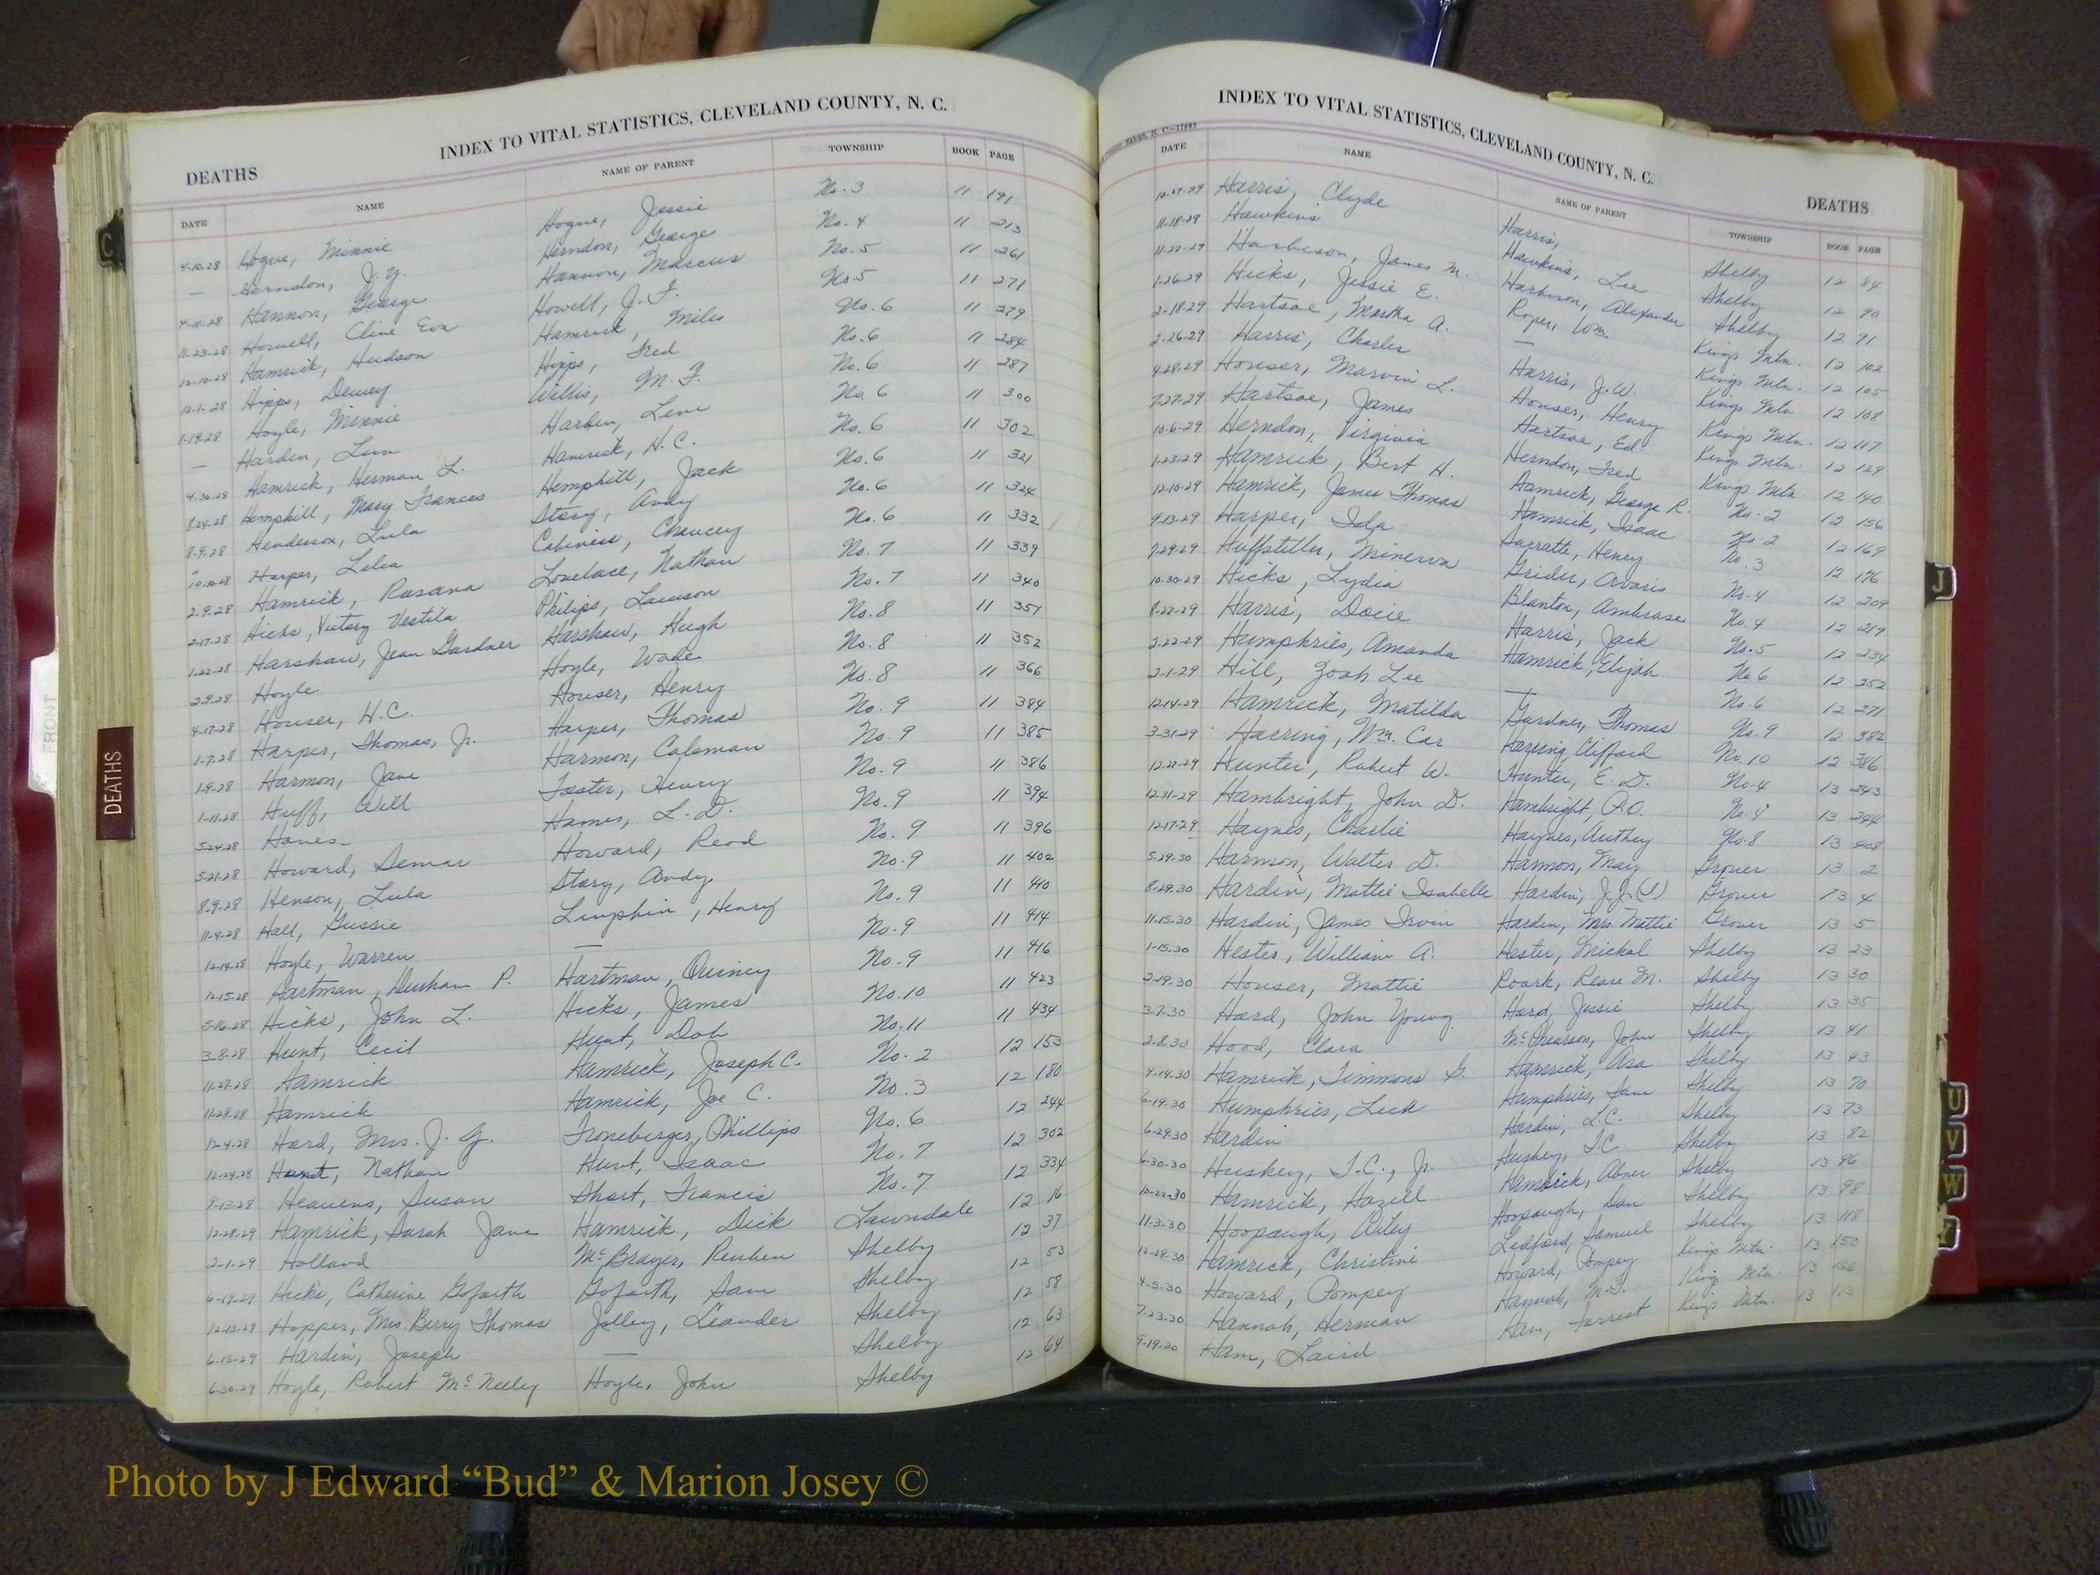 INDEX TO VITAL STATISTICS, CLEVELAND COUNTY, N. C.
DEATHS
DATE NAME NAME OF PARENT TOWNSHIP BOOK PAGE
4-10-28 Hogue, Minnie Hogue, Jessie No. 3 11 191
— Herndon, J.Y. Herndon, George No. 4 11 213
4-11-28 Hannon, George Hannon, Marcus No. 5 11 261
11-23-28 Howell, Cline Eva Howell, J. F. No. 5 11 271
12-10-28 Hamrick, Hudson Hamrick, Miles No. 6 11 279
12-1-28 Hipps, Dewey Hipps, Fred No. 6 11 284
1-19-28 Hoyle, Minnie Willis, M. F. No. 6 11 287
— Harden, Lum Harden, Levi No. 6 11 300
4-30-28 Hamrick, Herman L. Hamrick, H. C. No. 6 11 302
8-24-28 Hemphill, Mary Frances Hemphill, Jack No. 6 11 321
8-9-28 Henderson, Lula Story, Andy No. 6 11 324
10-10-28 Harper, Lelia Cabiness, Chaucey No. 6 11 332
2-9-28 Hamrick, Rosana Lovelace, Nathan No. 7 11 339
2-17-28 Hicks, Victory Vestila Philips, Lawson No. 7 11 340
1-22-28 Harshaw, Jean Gardner Harshaw, Hugh No. 8 11 351
2-9-28 Hoyle Hoyle, Wade No. 8 11 352
4-17-28 Houser, H. C. Houser, Henry No. 8 11 366
1-7-28 Harper, Thomas, Jr. Harper, Thomas No. 9 11 384
1-9-28 Harmon, Jane Harmon, Coleman No. 9 11 385
1-11-28 Huff, Will Foster, Henry No. 9 11 386
5-24-28 Hames Hames, L. D. No. 9 11 394
5-21-28 Howard, Demar Howard, Read No. 9 11 396
8-9-28 Henson, Lula Story, Andy No. 9 11 402
11-4-28 Hall, Gussie Linphin, Henry No. 9 11 410
12-14-28 Hoyle, Warren — No. 9 11 414
12-15-28 Hartman, Durham P. Hartman, Quincy No. 9 11 416
5-16-28 Hicks, John L. Hicks, James No. 10 11 423
3-8-28 Hunt, Cecil Hunt, Dob No. 11 11 434
11-27-28 Hamrick Hamrick, Joseph C. No. 2 12 153
11-28-28 Hamrick Hamrick, Joe C. No. 3 12 180
12-4-28 Hord, Mrs. J. Y. Froneberger, Phillips No. 6 12 244
12-24-28 Hunt, Nathan Hunt, Isaac No. 7 12 302
9-13-28 Heavens, Susan Short, Francis No. 7 12 334
12-28-29 Hamrick, Sarah Jane Hamrick, Dick Lawndale 12 16
2-1-29 Holland McBrayer, Reuben Shelby 12 37
6-19-29 Hicks, Catherine Goforth Goforth, Sam Shelby 12 53
12-13-29 Hopper, Mrs. Berry Thomas Jolley, Leander Shelby 12 58
6-15-29 Hardin, Joseph — Shelby 12 63
6-30-29 Hoyle, Robert McNeely Hoyle, John Shelby 12 64
INDEX TO VITAL STATISTICS, CLEVELAND COUNTY, N. C.
DEATHS
DATE NAME NAME OF PARENT TOWNSHIP BOOK PAGE
10-27-29 Harris, Clyde Harris, Shelby 12 84
11-18-29 Hawkins Hawkins, Lee Shelby 12 90
11-22-29 Harbison, James M. Harbison, Alexander Shelby 12 91
1-26-29 Hicks, Jessie E. Roper, Wm. Kings Mtn. 12 102
2-18-29 Hartsoe, Martha A. — Kings Mtn. 12 105
2-26-29 Harris, Charles Harris, J. W. Kings Mtn 12 108
4-28-29 Houser, Marvin L. Houser, Henry Kings Mtn. 12 117
7-27-29 Hartsoe, James Hartsoe, Ed. Kings Mtn. 12 129
10-6-29 Herndon, Virginia Herndon, Fred Kings Mtn. 12 140
1-23-29 Hamrick, Bert H. Hamrick, George R. No. 2 12 156
12-10-29 Hamrick, James Thomas Hamrick, Isaac No 2 12 169
9-13-29 Harper, Ida Sarratte, Henry No. 3 12 176
7-29-29 Huffstiller, Minerva Grider, Avaris No. 4 12 209
10-30-29 Hicks, Lydia Blanton, Ambrose No. 4 12 219
8-22-29 Harris, Docie Harris, Jack No. 5 12 234
3-22-29 Humphries, Amanda Hamrick, Elijah No 6 12 252
2-1-29 Hill, Zoah Lee — No. 6 12 271
12-14-29 Hamrick, Matilda Gardner, Thomas No. 9 12 382
3-31-29 Harring, Wm. Car Harring, Clifford No. 10 12 386
12-22-29 Hunter, Robert W. Hunter, E. D. No. 4 13 243
12-31-29 Hambright, John D. Hambright, P.O. No. 4 13 244
12-17-29 Haynes, Charlie Haynes, Authey No. 8 13 408
5-29-30 Harmon, Walter D. Harmon, May Grover 13 2
8-29-30 Hardin, Mattie Isabelle Hardin, J. J. Grover 13 4
11-15-30 Hardin, James Irvin Hardin, Mrs. Mattie Grover 13 5
1-15-30 Hester, William A. Hester, Mickal Shelby 13 23
2-19-30 Houser, Mattie Roark, Reare M. Shelby 13 30
3-7-30 Hord, John Young Hord, Jessie Shelby 13 35
2-8-30 Hood, Clara McShearson, John Shelby 13 41
4-14-30 Hamrick, Timmons G. Hamrick, Asa Shelby 13 43
6-19-30 Humphries, Leek Humphries, Sam Shelby 13 70
6-29-30 Hardin Hardin, L.C. Shelby 13 73
6-30-30 Huskey, T.C., Jr. Huskey, T.C Shelby 13 82
10-22-30 Hamrick, Hazell Hamrick, Abner Shelby 13 86
11-3-30 Hoopaugh, Arley Hoopaugh, Dan Shelby 13 98
12-28-30 Hamrick, Christine Ledford, Samuel Shelby 13 118
4-5-30 Howard, Pompey Howard, Pompey Kings Mtn. 13 150
7-23-30 Hannah, Herman Hannah, M. F. King Mtn. 13 166
9-19-30 Ham, Laird Ham, Forrest Kings Mtn. 13 173
C
FRONT
DEATHS
J
U
V
W
Photo by J Edward “Bud” & Marion Josey ©